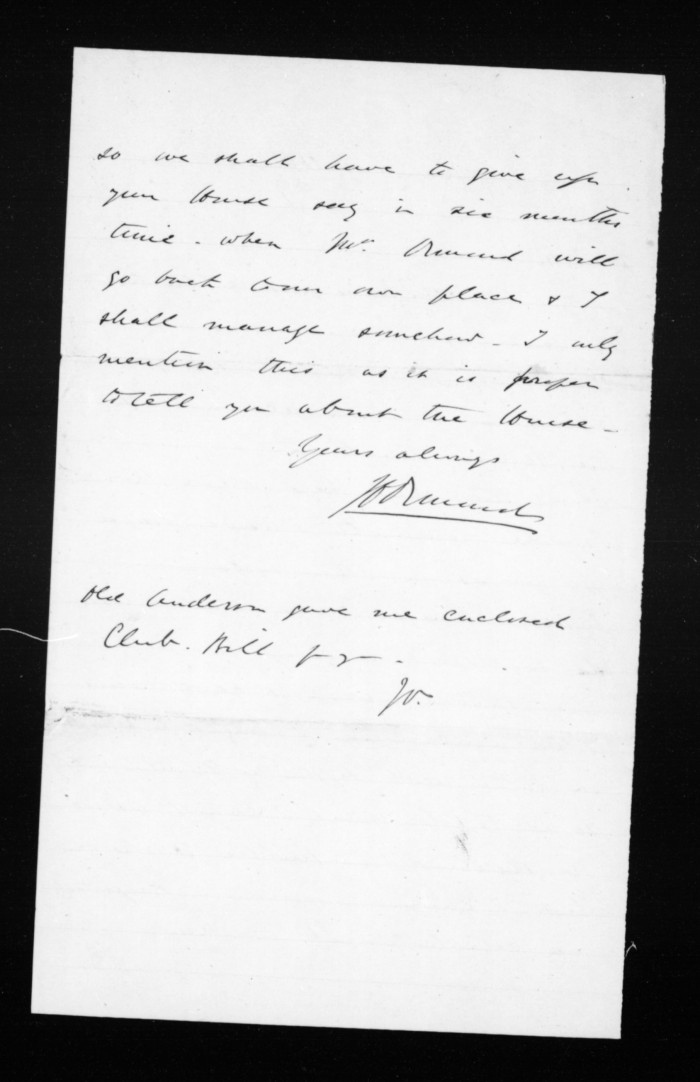 so we shall have to give up
your house say in six months
time - when Mrs Ormond will
go back to our own place & I
shall manage somehow - I only
mention this as it is proper
to tell you about the house -
Yours always
Ormond
Old Anderson gave me enclosed
Club. Bill for